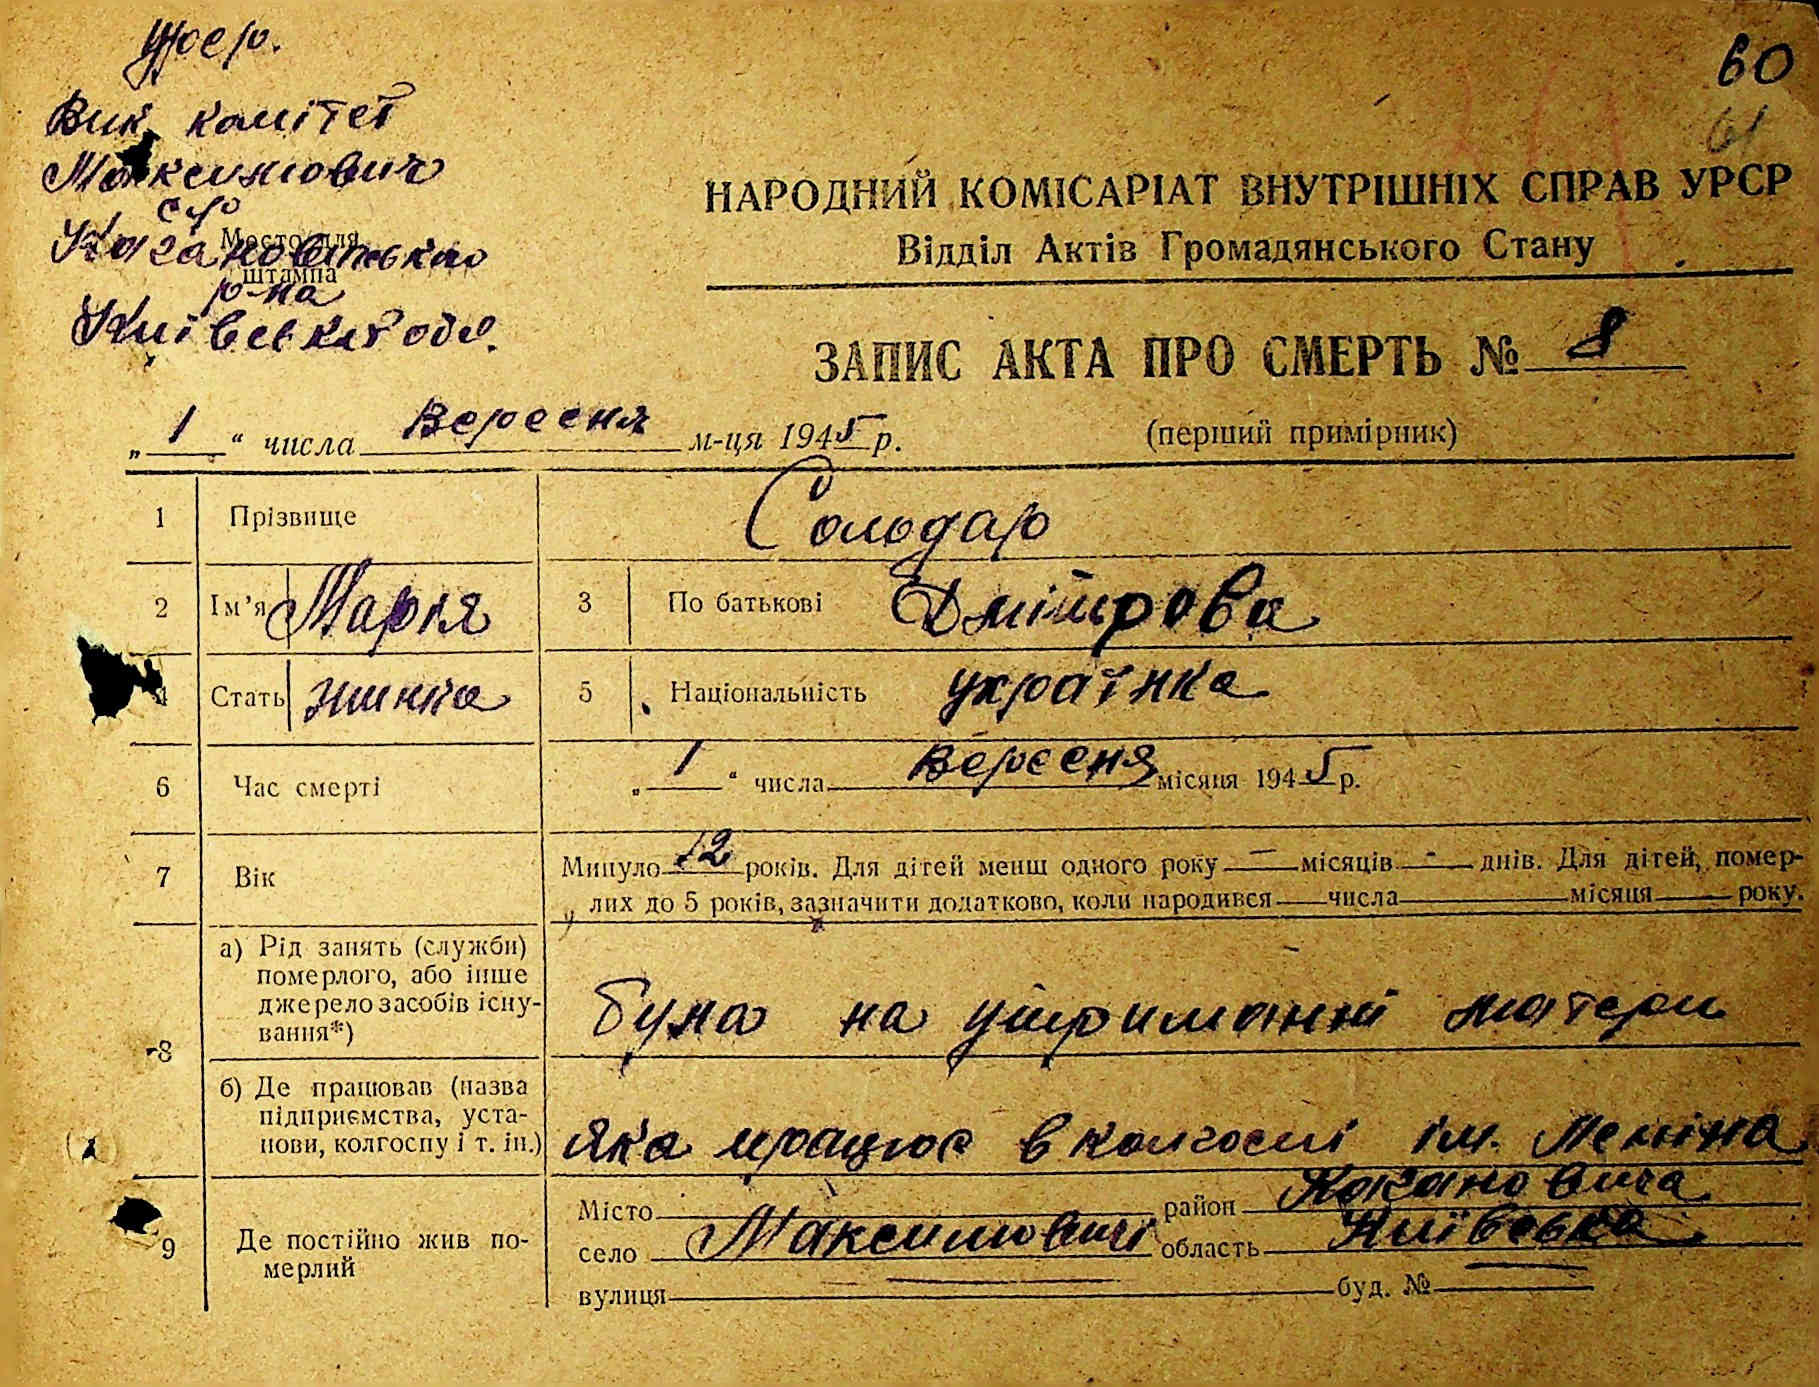 урср.
60
61
Вик. комітет
Максимович
с/р
Місце для
штампа
Кагановіцького
р-на
Київської обл.
НАРОДНИЙ КОМІСАРІАТ ВНУТРІШНІХ СПРАВ УРСР
Відділ Актів Громадянського Стану
ЗАПИС АКТА ПРО СМЕРТЬ № 8
„ 1 “ числа Вересня м-ця 1945 р. (перший примірник)
1 Прізвище Солодар
2 Ім'я Марія 3 По батькові Дмітрова
4 Стать жинка 5 Національність українка
6 Час смерті „ 1 “ числа Вересня місяця 1945 р.
7 Вік Минуло 12 років. Для дітей менш одного року — місяців - днів. Для дітей, помер-
лих до 5 років, зазначити додатково, коли народився числа місяця року.
8 а) Рід занять (служби)
померлого, або інше
джерело засобів існу-
вання*)
була на утриманні матери
б) Де працював (назва
підприємства, уста-
нови, колгоспу і т. ін.)
яка працює в колгоспі ім. Леніна
9 Де постійно жив по-
мерлий
Місто район Кагановича
село Максимовичі область Київська
вулиця — буд. № —